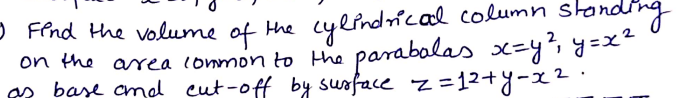 ) Find the volume of the cylindrical column standing
on the area common to the parabolas x=y², y=x²
as base and cut-off by surface z=12+y-x².